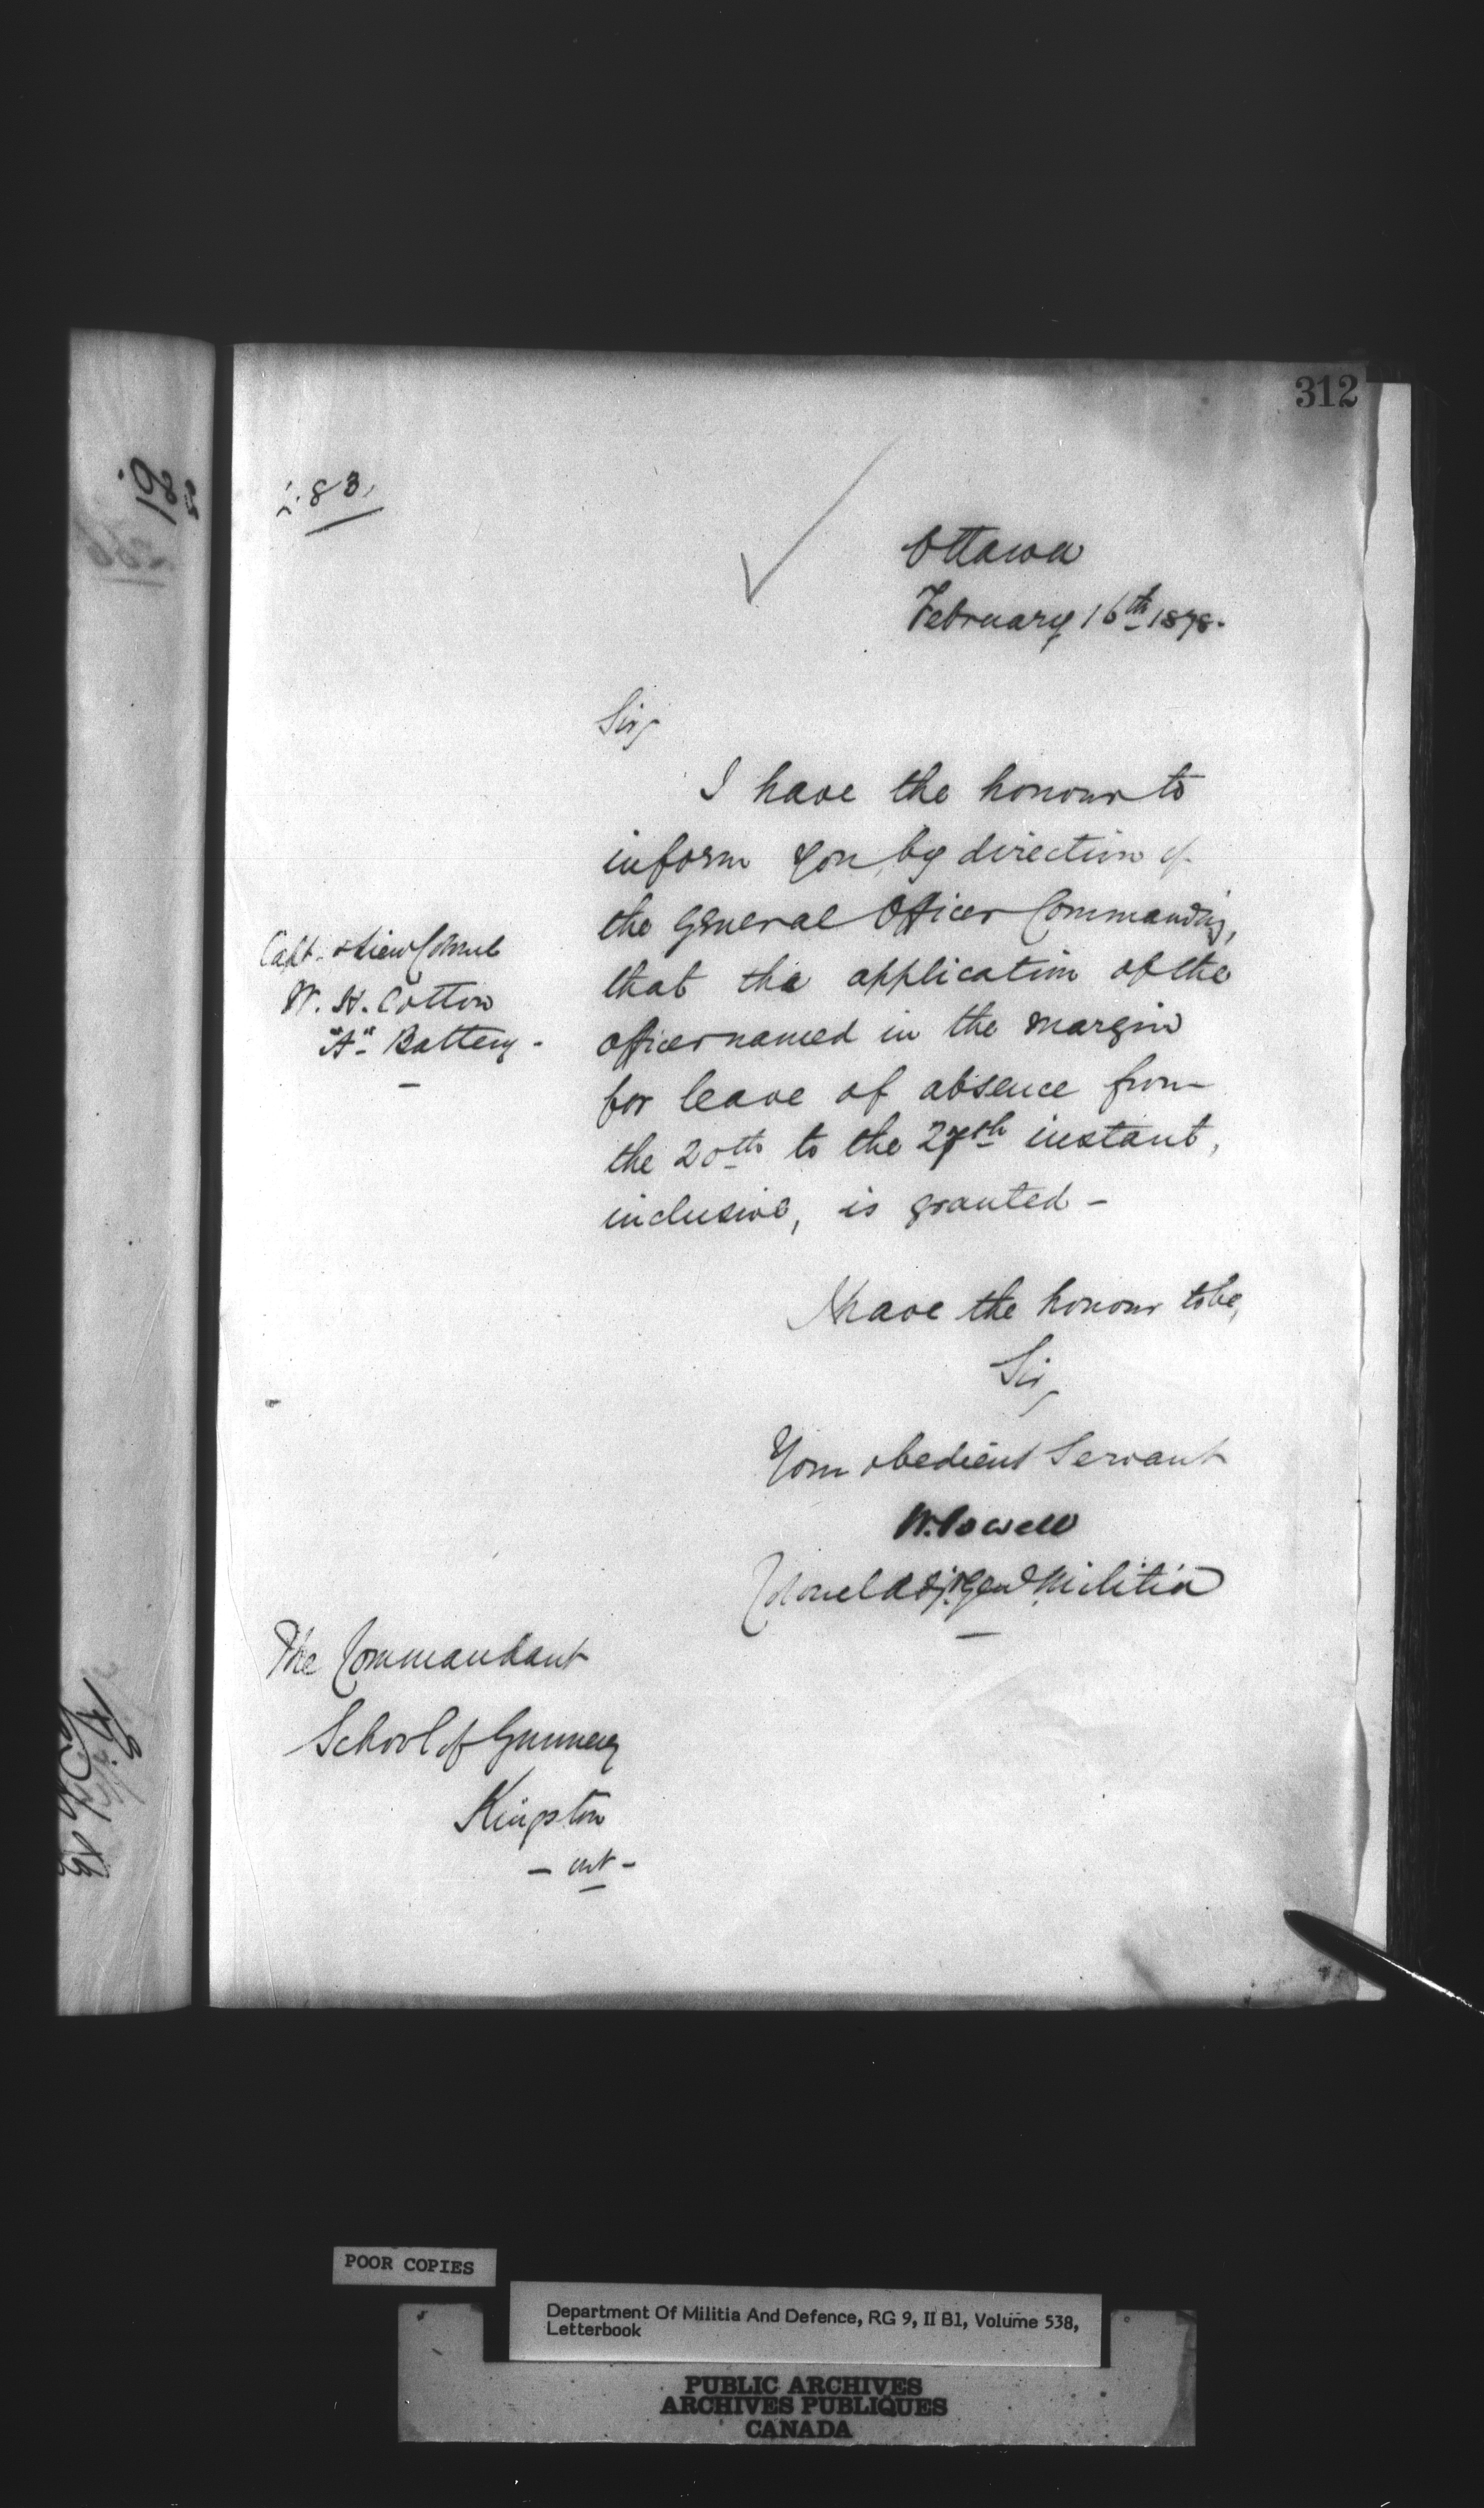 312
Ottawa
February 16th 1878.
Sir,
I have the honour to
inform you, by direction of
the General Officer Commanding,
that the application of the
officer named in the margin
for leave of absence from
the 20th to the 27th instant,
inclusive, is granted -
Capt. & Lieut Colonel
W. H. Cotton
"A" Battery -
I have the honour to be,
Sir,
Your obedient Servant
W. Powell
Colonel Adj. Genl Militia
The Commandant
School of Gunnery
Kingston
- Ont -
POOR COPIES
Department Of Militia And Defence, RG 9, II B1, Volume 538,
Letterbook
PUBLIC ARCHIVES
ARCHIVES PUBLIQUES
CANADA